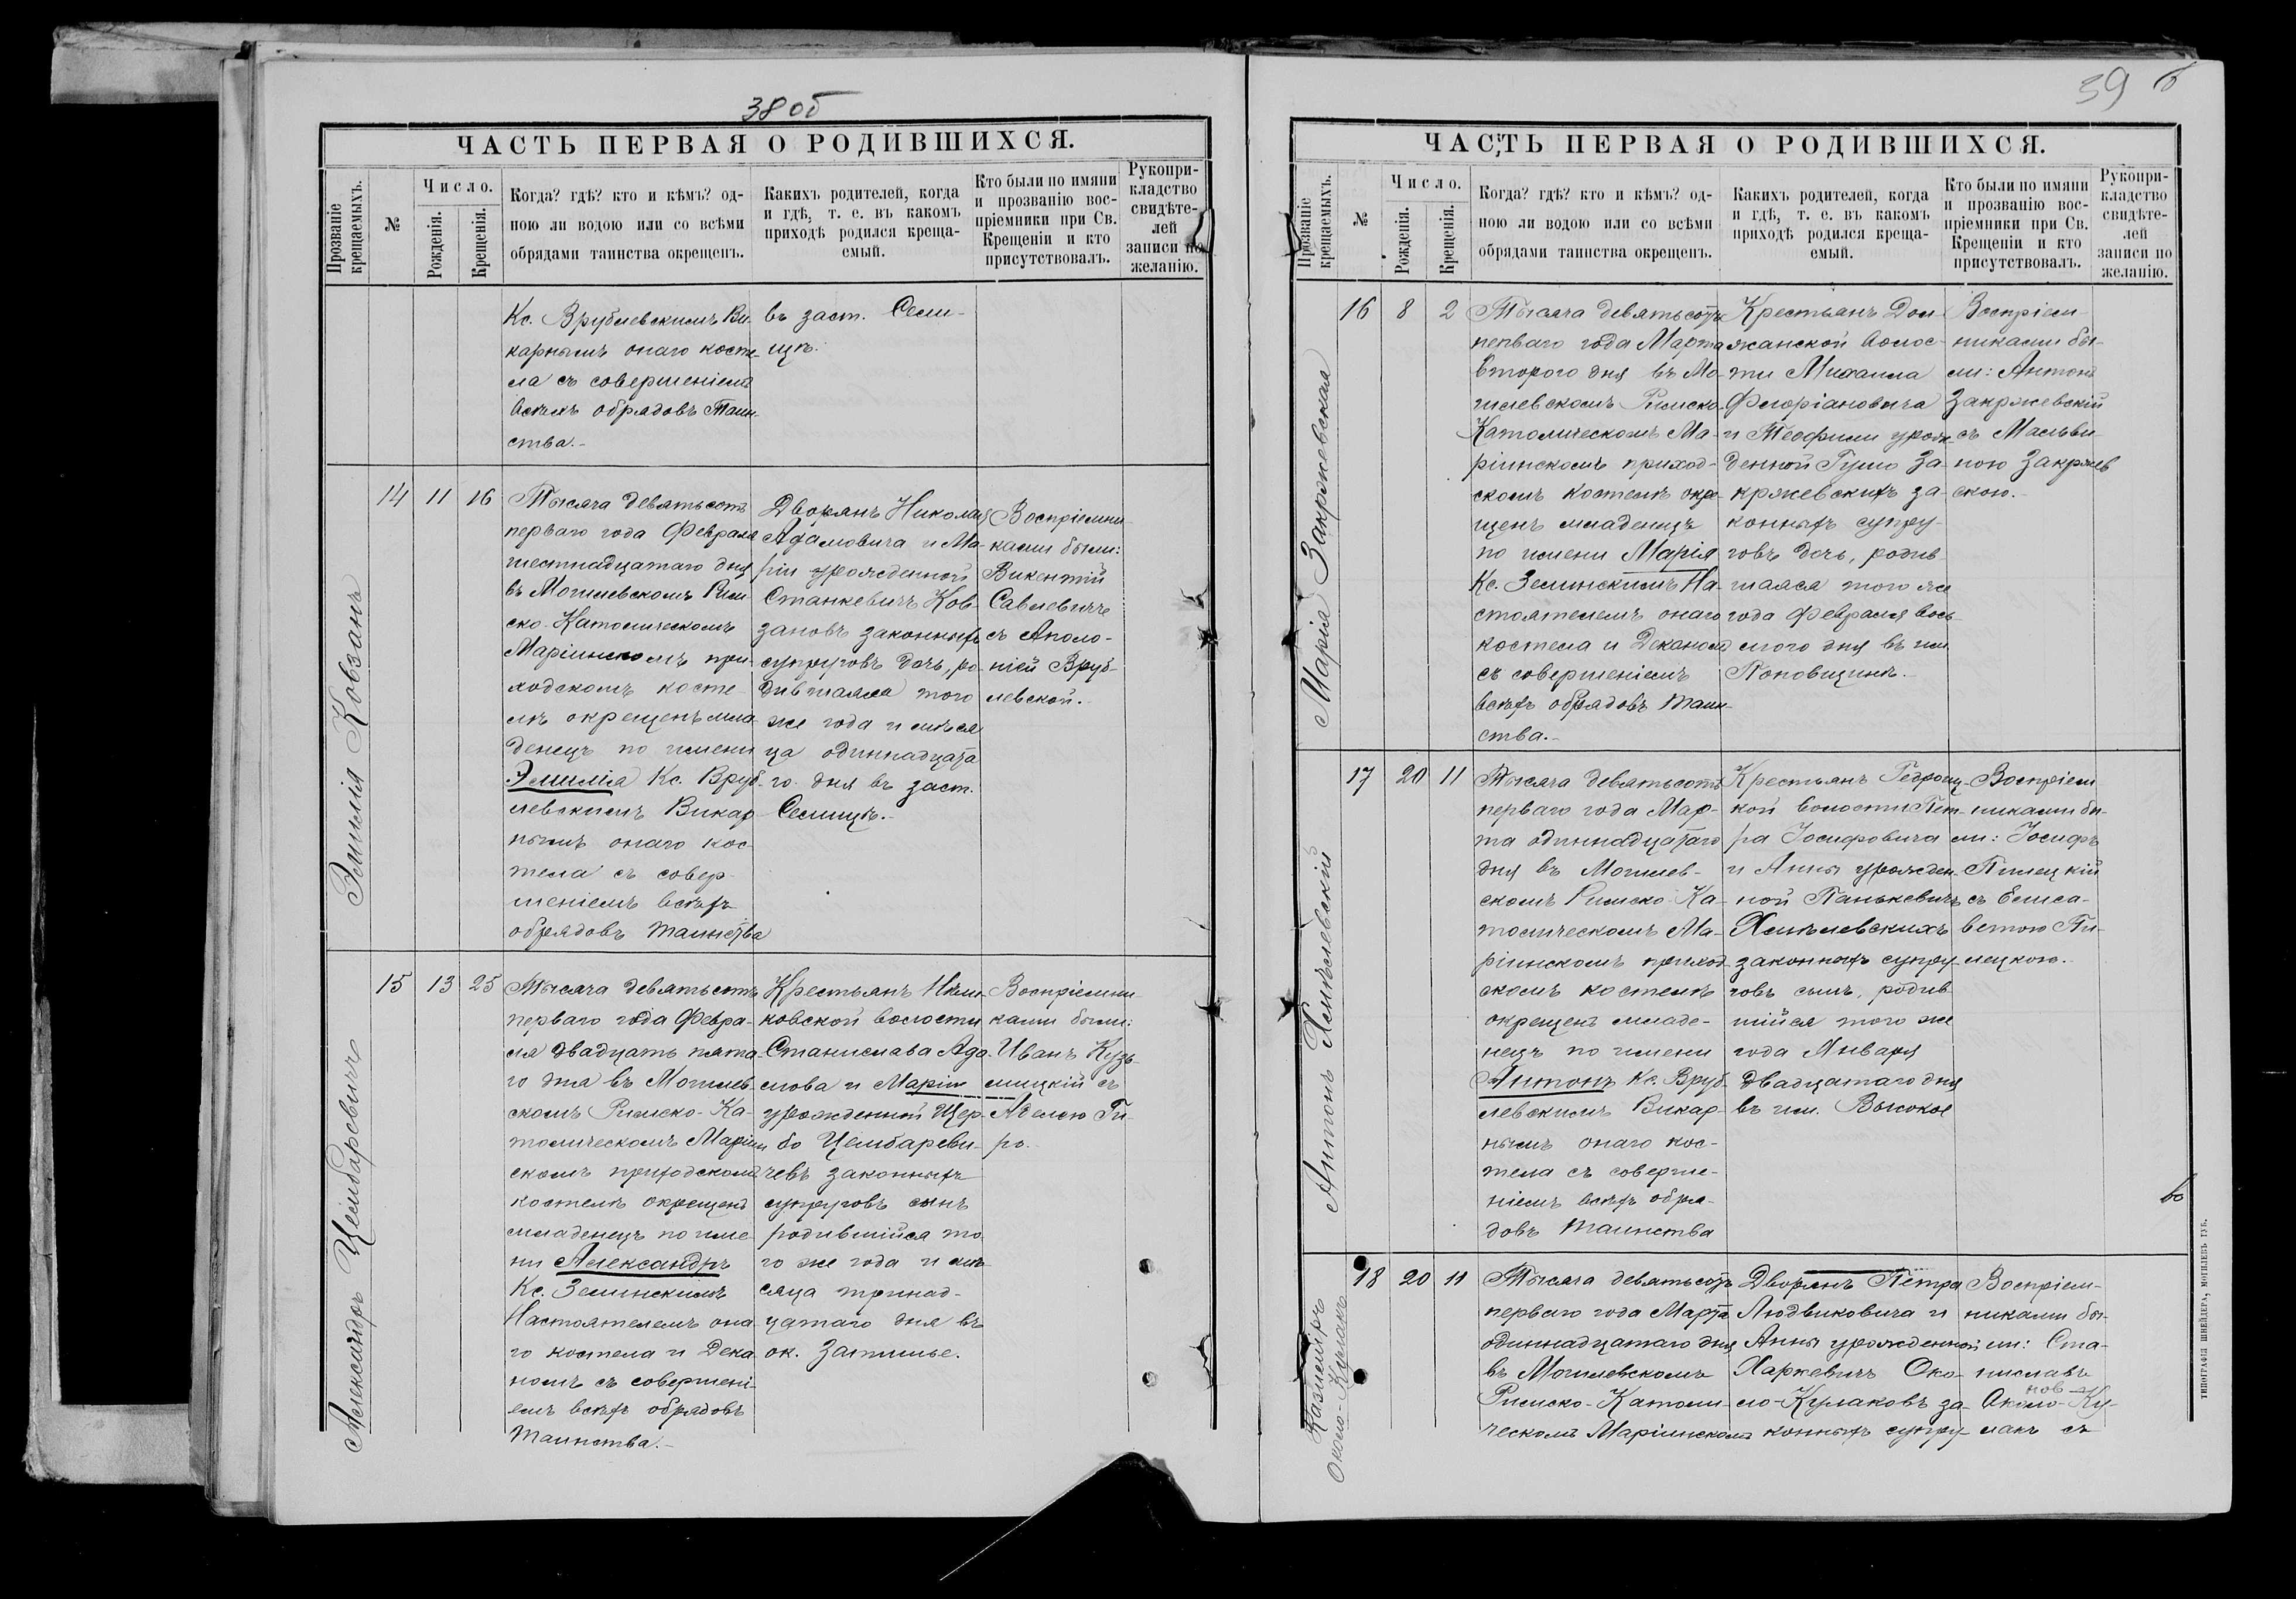 38 об
ЧАСТЬ ПЕРВАЯ О РОДИВШИХСЯ.
Прозваніе крещаемыхъ.
№
Число.
Рожденія.
Крещенія.
Когда? гдѣ? кто и кѣмъ? од-
ною ли водою или со всѣми
обрядами таинства окрещенъ.
Какихъ родителей, когда
и гдѣ, т. е. въ какомъ
приходѣ родился креща-
емый.
Кто были по имяни
и прозванію вос-
пріемники при Св.
Крещеніи и кто
присутствовалъ.
Рукопри-
кладство
свидѣте-
лей
записи по
желанію.
Кс. Врублевскимъ Ви-
карнымъ онаго косте-
ла съ совершеніемъ
всѣхъ обрядовъ Таин-
ства.-
въ заст. Сели-
щѣ.
Эмилія Ковзанъ
14 11 16
Тысяча девятьсотъ
перваго года Февраля
шестнадцатаго дня
въ Могилевскомъ Рим-
ско-Католическомъ
Маріинскомъ при-
ходскомъ косте-
лѣ окрещенъ мла-
денецъ по имени
Эмилія Кс. Вруб-
левскимъ Викар-
нымъ онаго кос-
тела съ совер-
шеніемъ всѣхъ
обрядовъ таинства
Дворянъ Николая
Адамовича и Ма-
ріи урожденной
Станкевичъ Ков-
зановъ законныхъ
супруговъ дочь, ро-
дившаяся того
же года и мѣся
ца одиннадцата
го дня въ заст.
Селищѣ.-
Воспріемни-
ками были:
Викентій
Савлевичъ
съ Аполо-
ніей Вруб-
левской.-
Александръ Цеймбаревичъ
15 13 25
Тысяча девятьсотъ
перваго года Февра-
ля двадцать пята-
го дня въ Могилев-
скомъ Римско-Ка-
толическомъ Маріин
скомъ приходскомъ
костелѣ окрещенъ
младенецъ по име-
ни Александръ
Кс. Зелинскимъ
Настоятелемъ она-
го костела и Дека-
номъ съ совершені-
емъ всѣхъ обрядовъ
Таинства.-
Крестьянъ Ним-
ковской волости
Станислава Ада-
мова и Маріи
урожденной Щер-
бо Цеимбареви-
чевъ законныхъ
супруговъ сынъ
родившійся то
го же года и мѣ-
сяца тринад-
цатаго дня въ
ок. Затишье.
Воспріемни-
ками были:
Иванъ Кузь-
мицкій съ
Аделею Ги-
ро.
39
ЧАСТЬ ПЕРВАЯ О РОДИВШИХСЯ.
Прозваніе крещаемыхъ.
№
Число.
Рожденія.
Крещенія.
Когда? гдѣ? кто и кѣмъ? од-
ною ли водою или со всѣми
обрядами таинства окрещенъ.
Какихъ родителей, когда
и гдѣ, т. е. въ какомъ
приходѣ родился креща-
емый.
Кто были по имяни
и прозванію вос-
пріемники при Св.
Крещеніи и кто
присутствовалъ.
Рукопри-
кладство
свидѣте-
лей
записи по
желанію.
Марія Закржевская
16 8 2
Тысяча девятьсотъ
перваго года Марта
второго дня въ Мо-
гилевскомъ Римско-
Католическомъ Ма-
ріинскомъ приход-
скомъ костелѣ окре-
щенъ младенецъ
по имени Марія
Кс. Зелинскимъ На-
стоятелемъ онаго
костела и Деканомъ
съ совершеніемъ
всѣхъ обрядовъ таин-
ства.-
Крестьянъ Дом-
жанской волос-
ти Михаила
Флоріановича
и Теофили урож-
денной Гуло За-
кржевскихъ за-
конныхъ супру-
говъ дочь, родив-
шаяся того же
года Февраля вось-
мого дня въ им.
Поповщинѣ.-
Воспріем-
никами бы-
ли: Антонъ
Закржевскій
съ Мальви-
ною Закржев
скою.-
Антонъ Хмѣлевскій
17 20 11
Тысяча девятьсотъ
перваго года Мар-
та одиннадцатаго
дня въ Могилев-
скомъ Римско-Ка-
толическомъ Ма-
ріинскомъ приход-
скомъ костелѣ
окрещенъ младе-
нецъ по имени
Антонъ Кс. Вруб-
левскимъ Викар-
нымъ онаго кос-
тела съ соверше-
ніемъ всѣхъ обря-
довъ таинства
Крестьянъ
кой волости Пет-
ра Іосифовича
и Анны урожден-
ной Панькевичъ
Хмѣлевскихъ
законныхъ супру-
говъ сынъ, родив-
шійся того же
года Января
двадцатаго дня
въ им. Высокое
Воспріем-
никами бы-
ли: Іосифъ
Пилецкій
съ Елиса-
ветою Пи-
лецкою.-
Казиміръ
Около-Кулакъ
18 20 11
Тысяча девятьсотъ
перваго года Марта
одиннадцатаго дня
въ Могилевскомъ
Римско-Католи-
ческомъ Маріинскомъ
Дворянъ Петра
Людвиковича и
Анны урожденной
Харкевичъ Око-
ло-Кулаковъ за-
конныхъ супру-
Воспріем-
никами бы-
ли: Ста-
ниславъ
Около-Ку-
лакъ съ
ТИПОГРАФІЯ ШНЕЙДЕРА, МОГИЛЕВЪ ГУБ.